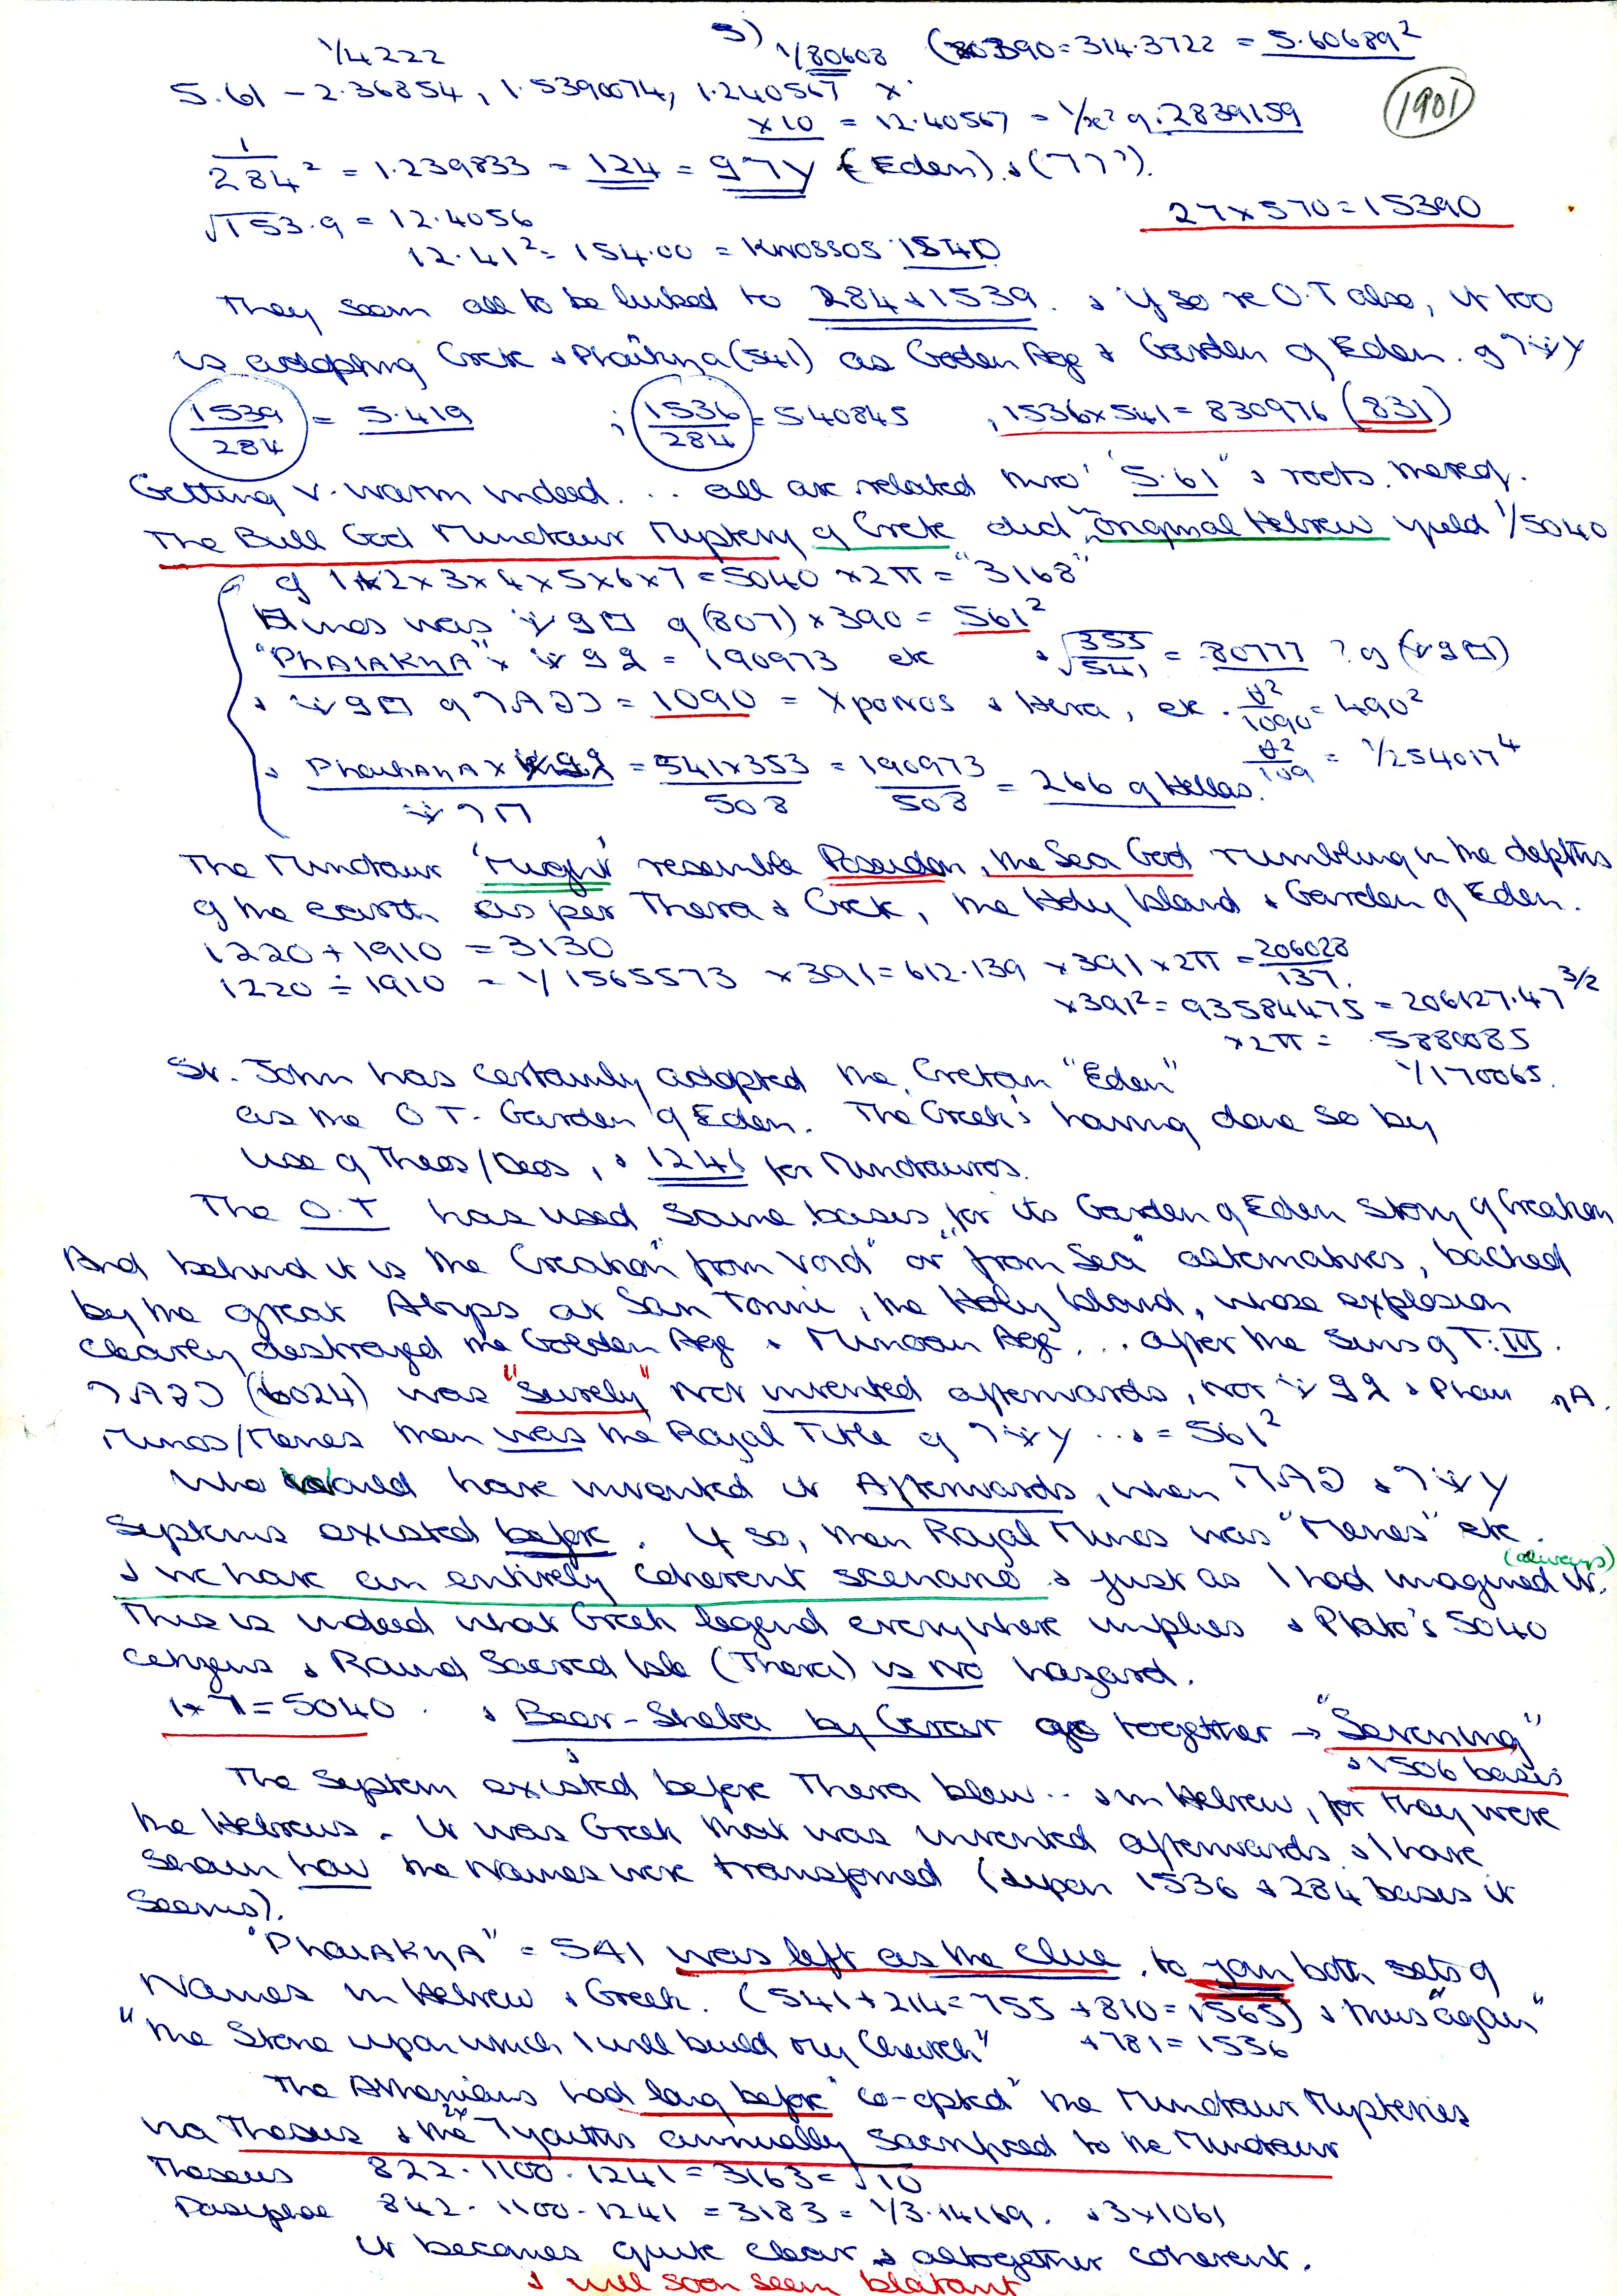 3)
1/4222 1/80608 (390 = 314.3722 = 5.60689²
5.61 - 2.36854, 1.5390074, 1.240567 x
x10 = 12.40567 = 1/x² of .2839159
(1901)
1/284² = 1.239833 = 124 = (Eden) & (77?).
√153.9 = 12.4056
27 x 570 = 15390
12.41² = 154.00 = Knossos 1540
They seem all to be linked to 284 & 1539. & if so re O.T also, it too
is adopting Crete & Phaikya (541) as Golden Age & Garden of Eden. of
1539/284 = 5.419 ; 1536/284 = 5.40845 , 1536 x 541 = 830976 (831)
Getting v. warm indeed... all are related thro' "5.61" & roots thereof.
The Bull God Minotaur Mystery of Crete did original Hebrew yield 1/5040
of 1x2x3x4x5x6x7 = 5040 x 2π = "3168"
Minos was of (807) x 390 = 561²
"PhAIAKηA" x = 190973 etc & √353/541 = .80777 ? of
& of = 1090 = Xρονος & Hera, etc. /1090 = 490²
& PhaiakηA x = 541x353/508 = 190973/508 = 266 of Hellas. /109 = 1/254017⁴
The Minotaur 'Might' resemble Poseidon, the Sea God rumbling in the depths
of the earth as per Thera & Crete, the Holy Island & Garden of Eden.
1220 + 1910 = 3130
1220 ÷ 1910 = 1/1565573 x 391 = 612.139 x 391 x 2π = 206028/137.
x 391² = 93584475 = 206127.47 3/2
x 2π = .5880085
1/170065.
St. John has certainly adopted the Cretan "Eden"
as the O T. Garden of Eden. The Greek's having done so by
use of Theos/Deos, & 1241 for Minotauros.
The O.T has used same basis for its Garden of Eden story of Creation
And behind it is the Creation "from Void" or "from Sea" alternatives, backed
by the great Abyss at San Torini, the Holy Island, whose explosion
clearly destroyed the Golden Age & Minoan Age... after the Suns of T:III.
(6024) was "Surely" not invented afterwards, nor & Phai ηA.
Minos/Menes then was the Royal Title of ..& = 561²
Who would have invented it Afterwards, when &
Systems existed before. If so, then Royal Minos was "Menes" etc.
& we have an entirely coherent scenario & just as I had (always) imagined it.
This is indeed what Greek legend everywhere implies & Plato's 5040
Citizens & Round Sacred Isle (Thera) is no hazard.
1x7 = 5040. & Beer-Sheba by Gerar go together → "Sevening"
& 1506 basis
The System existed before Thera blew.. & in Hebrew, for they were
the Hebrews. It was Greek that was invented afterwards & I have
shown how the Names were transformed (upon 1536 & 284 bases it
seems).
"PhaiAKηA" = 541 was left as the clue, to join both sets of
Names in Hebrew & Greek. (541 + 214 = 755 + 810 = 1565) & thus "again"
"the Stone upon which I will build my Church" + 781 = 1536
The Athenians had long before "co-opted" the Minotaur Mysteries
via Theseus & the 2x 7 youths annually sacrificed to the Minotaur
Theseus 822 . 1100 . 1241 = 3163 = √10
Pasiphae 842 . 1100 . 1241 = 3183 = 1/3.14169. & 3x1061
It becomes quite clear & altogether coherent.
& will soon seem blatant